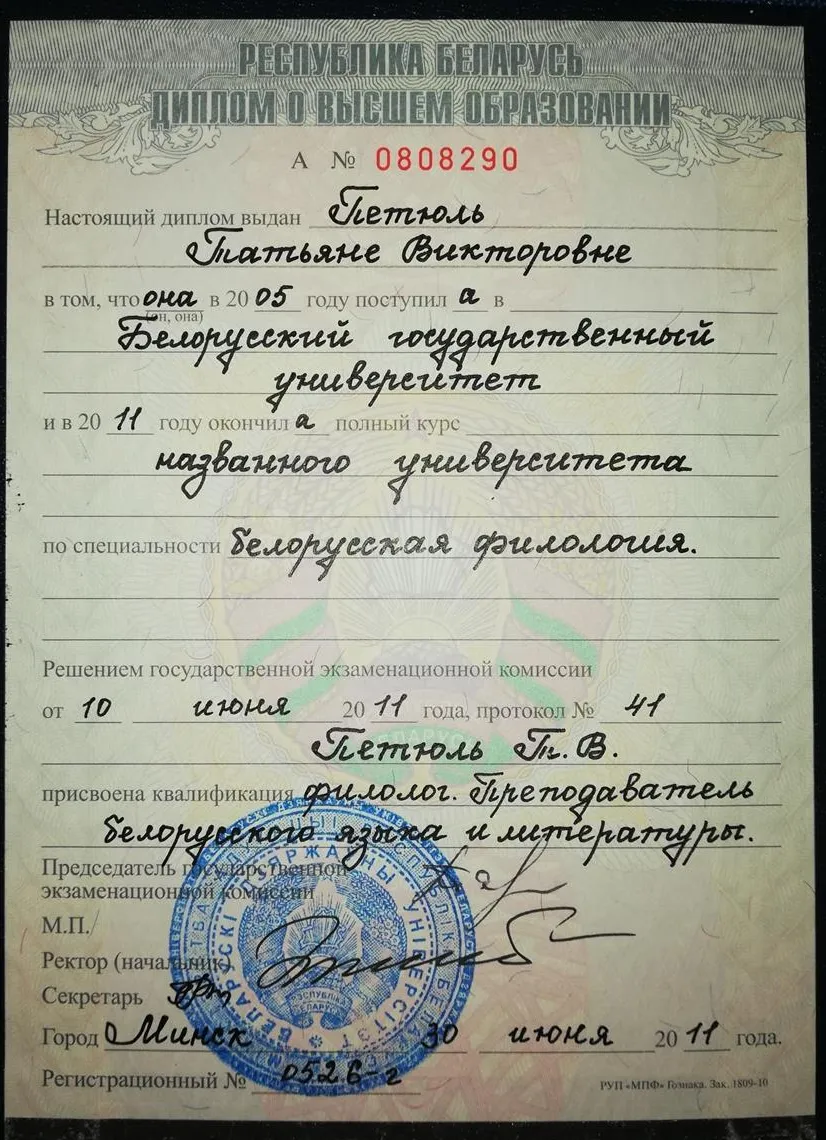 РЕСПУБЛИКА БЕЛАРУСЬ
ДИПЛОМ О ВЫСШЕМ ОБРАЗОВАНИИ
А № 0808290
Настоящий диплом выдан Петюль
Татьяне Викторовне
в том, что она в 2005 году поступила в
(он, она)
Белорусский государственный
университет
и в 2011 году окончила полный курс
названного университета
по специальности белорусская филология.
Решением государственной экзаменационной комиссии
от 10 июня 2011 года, протокол № 41
Петюль Т.В.
присвоена квалификация филолог. Преподаватель
белорусского языка и литературы.
Председатель государственной
экзаменационной комиссии
М.П.
Ректор (начальник)
Секретарь
Город Минск 30 июня 2011 года.
Регистрационный № 0526-г
РУП «МПФ» Гознака. Зак. 1809-10